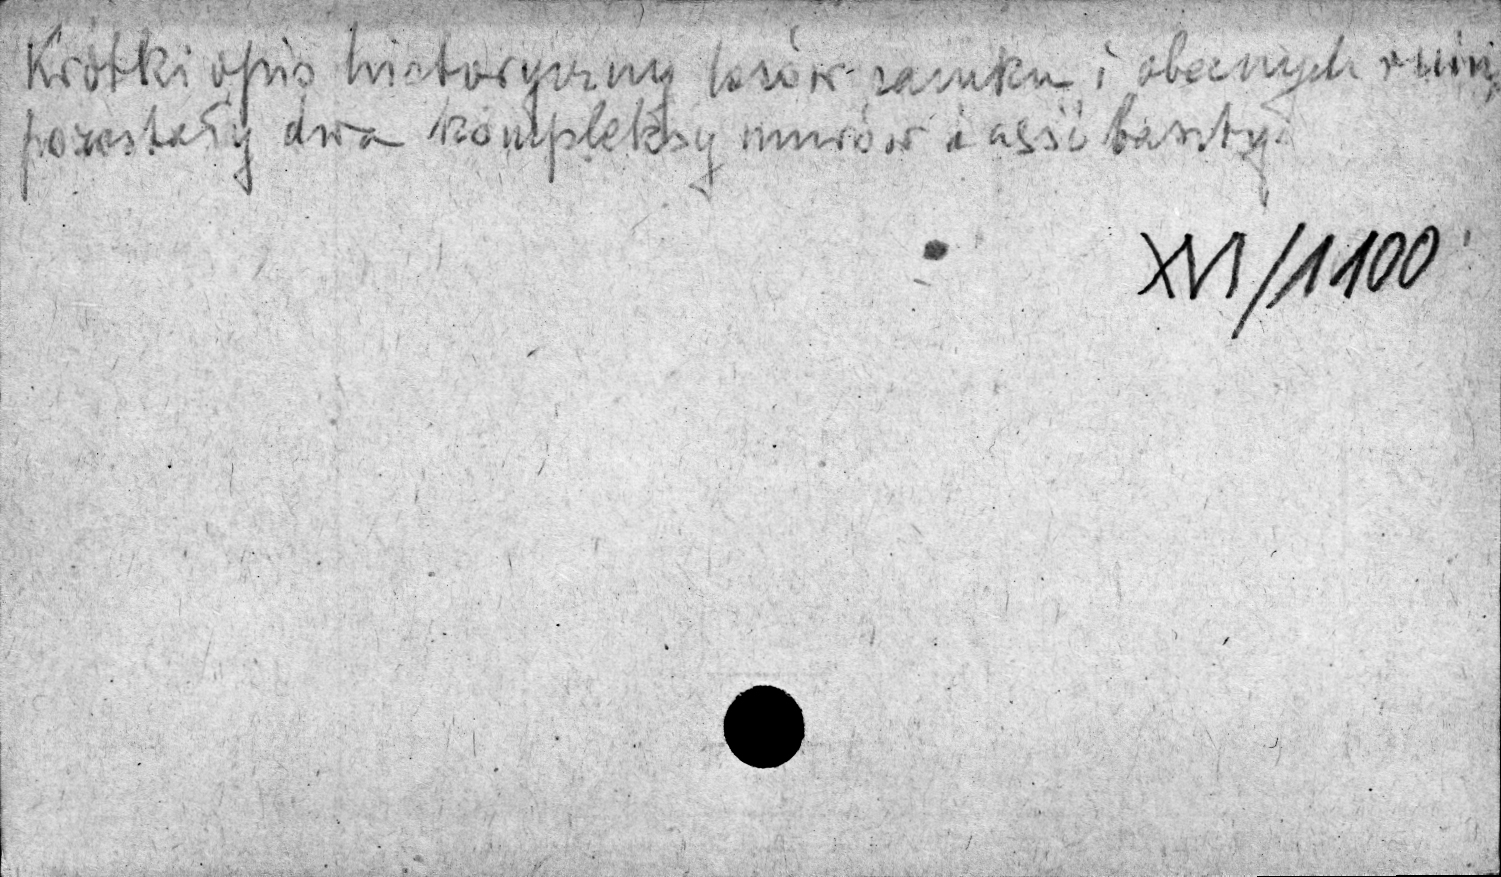 Krótki opis historyczny losów zamku i obecnych ruin,
pozostały dwa kompleksy murów i część baszty.
XVI/1100